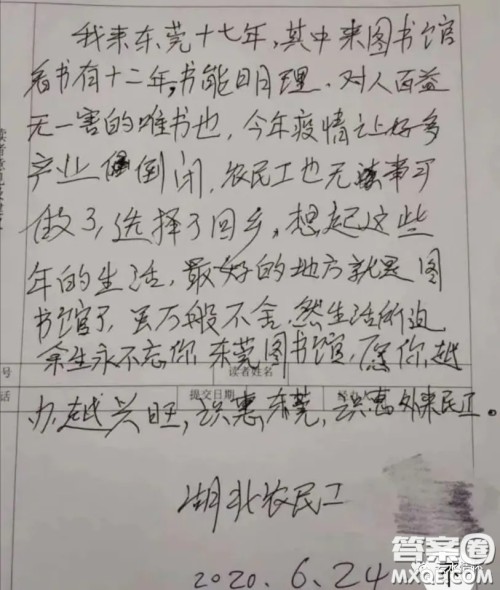 我来东莞十七年,其中来图书馆
看书有十二年,书能明理、对人百益
无一害的唯书也,今年疫情让好多
产业倒闭,农民工也无事可
做了,选择了回乡,想起这些
年的生活,最好的地方就是图
书馆了,虽万般不舍,然生活所迫
余生永不忘你东莞图书馆,愿你越
号
读者姓名
办越兴旺,识惠东莞,识惠外来民工。
话
提交日期
湖北农民工
2020.6.24
答案圈
MXQE.COM